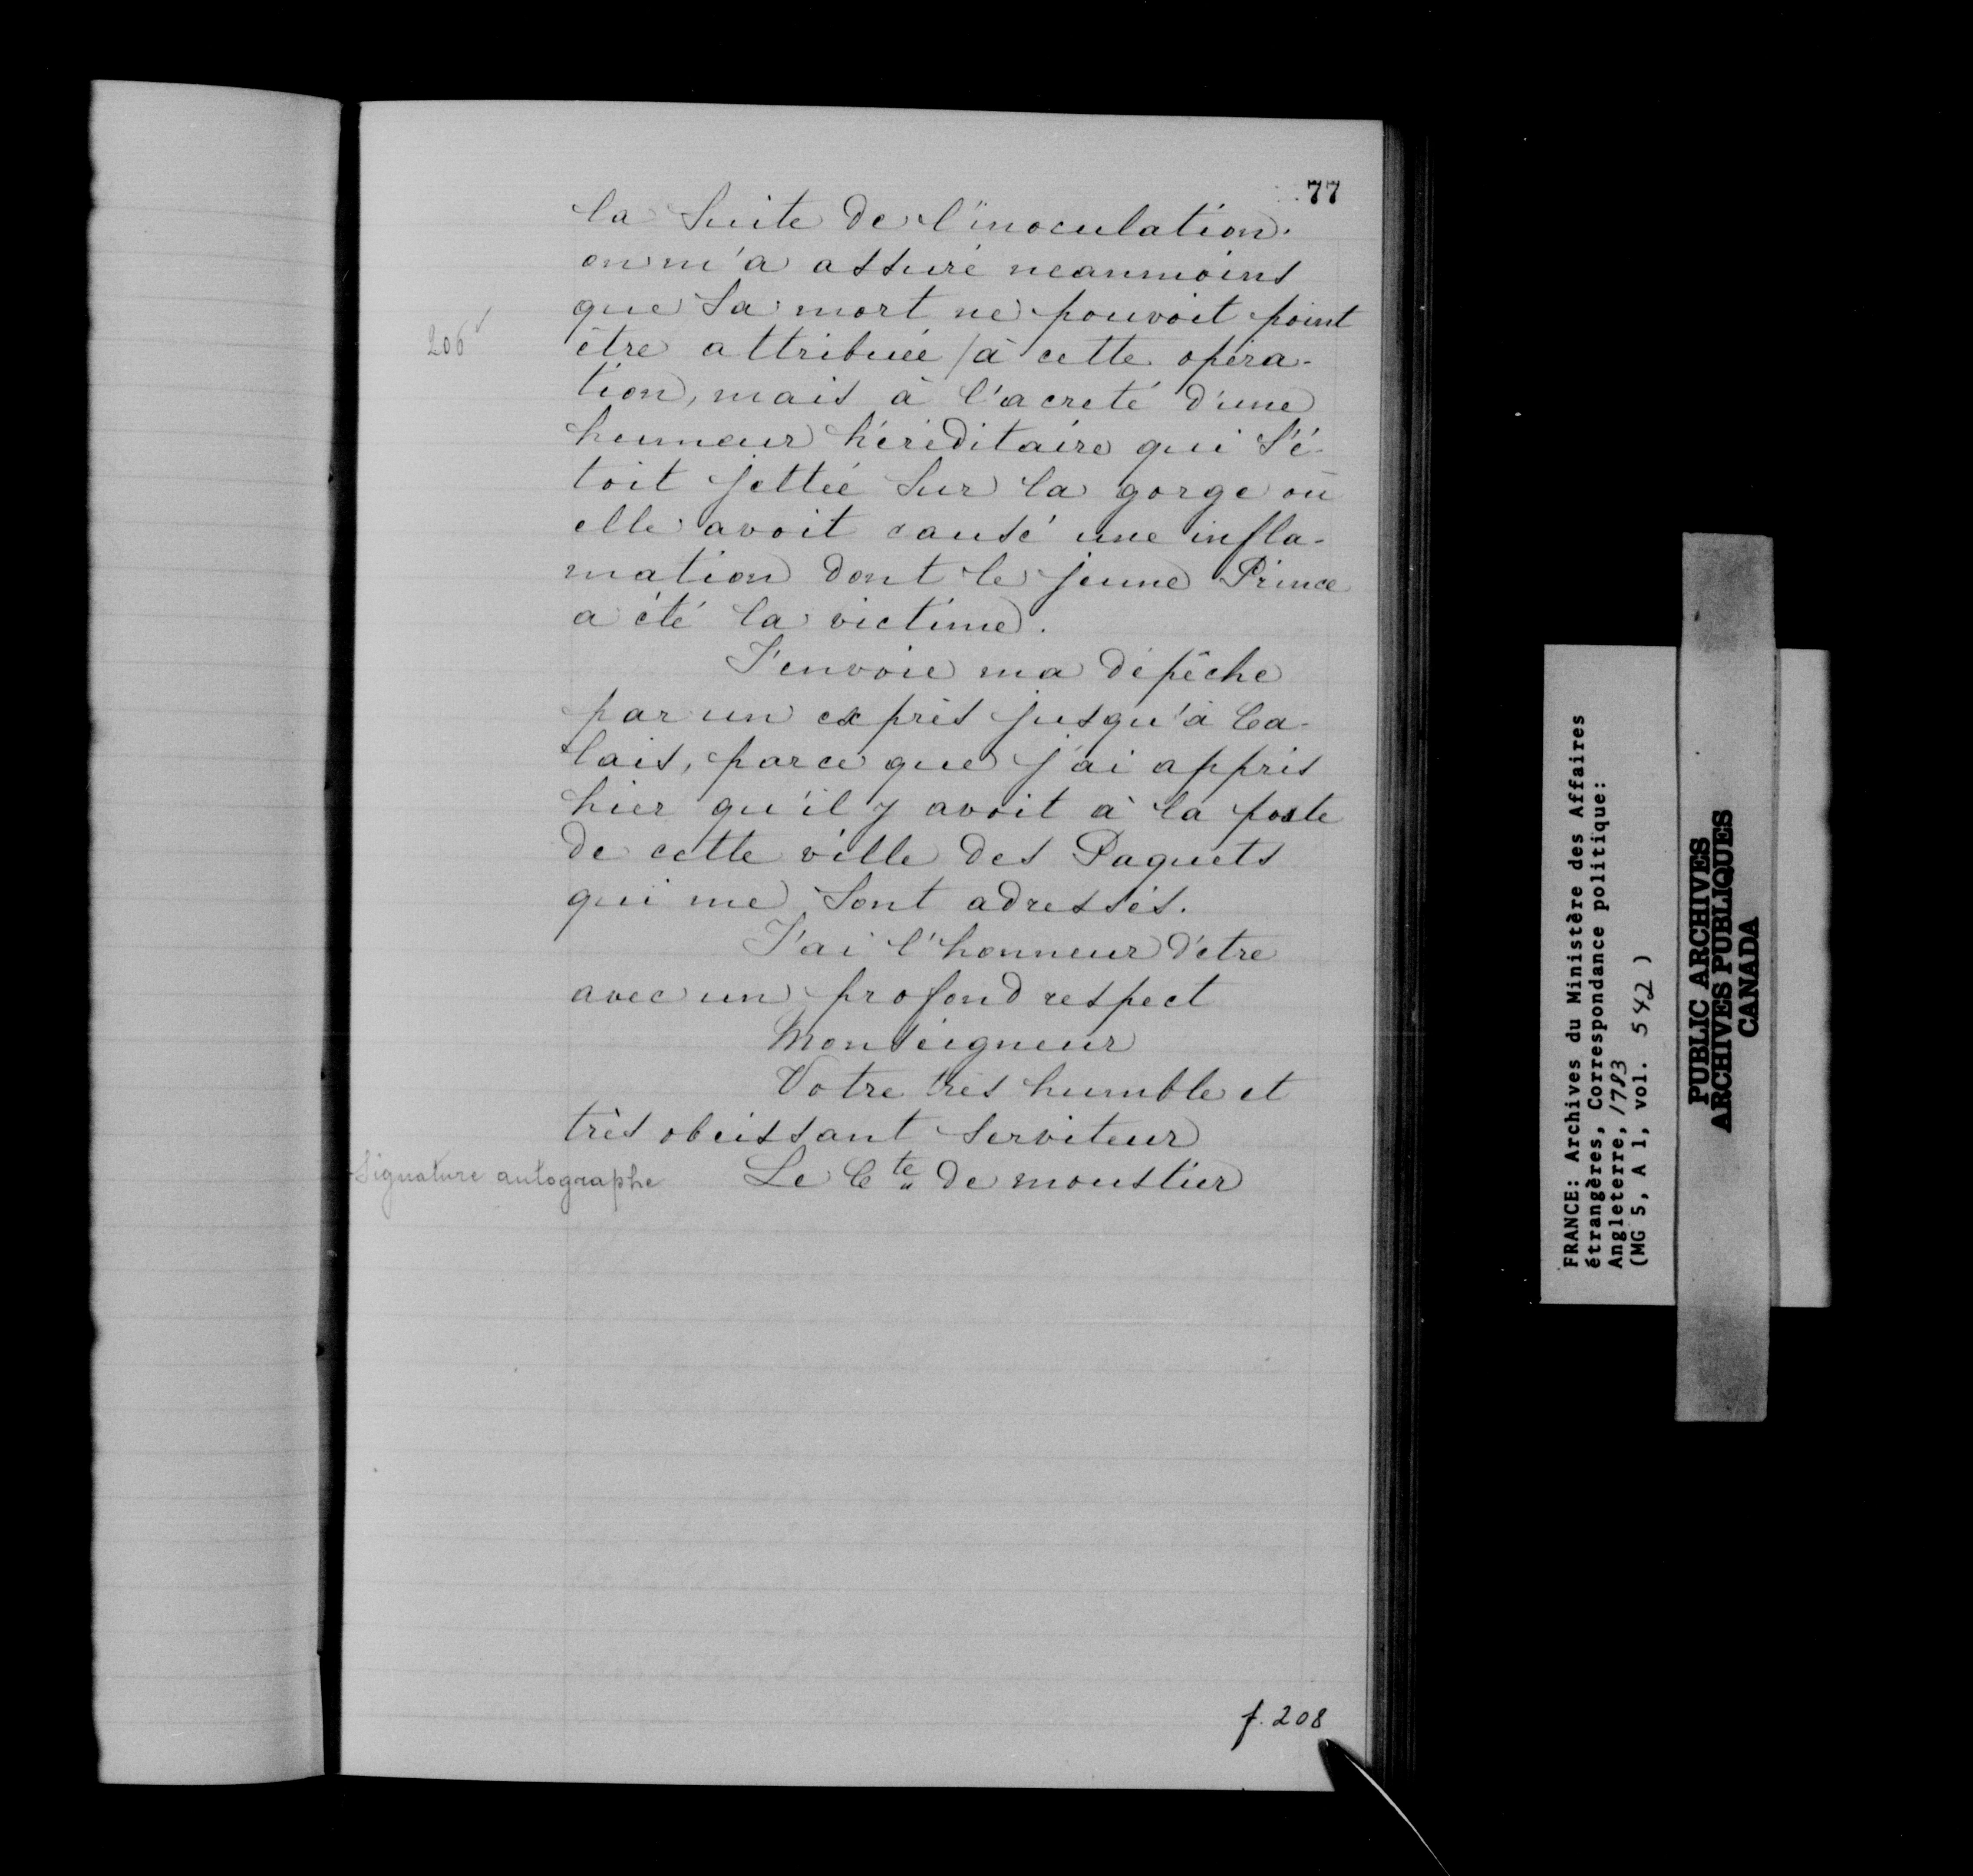 77
la Suite de l'inoculation.
on m'a assuré neanmoins
que Sa mort ne pouvoit point
206 v
être attribuée / à cette opéra-
tion, mais à l'acreté d'une
humeur héréditaire qui S'é-
toit jettée Sur la gorge où
elle avoit causé une infla-
mation dont le jeune Prince
a été la victime.
J'envoie ma dépêche
par un exprès jusqu'à Ca-
lais, parce que j'ai appris
hier qu'il y avoit à la poste
de cette ville des Paquets
qui me Sont adressés.
J'ai l'honneur d'etre
avec un profond respect
Monseigneur
Votre très humble et
très obeissant Serviteur
Signature autographe Le Cte de moustier
f. 208
FRANCE: Archives du Ministère des Affaires
étrangères, Correspondance politique:
Angleterre, 1783
(MG 5, A 1, vol. 542 )
PUBLIC ARCHIVES
ARCHIVES PUBLIQUES
CANADA